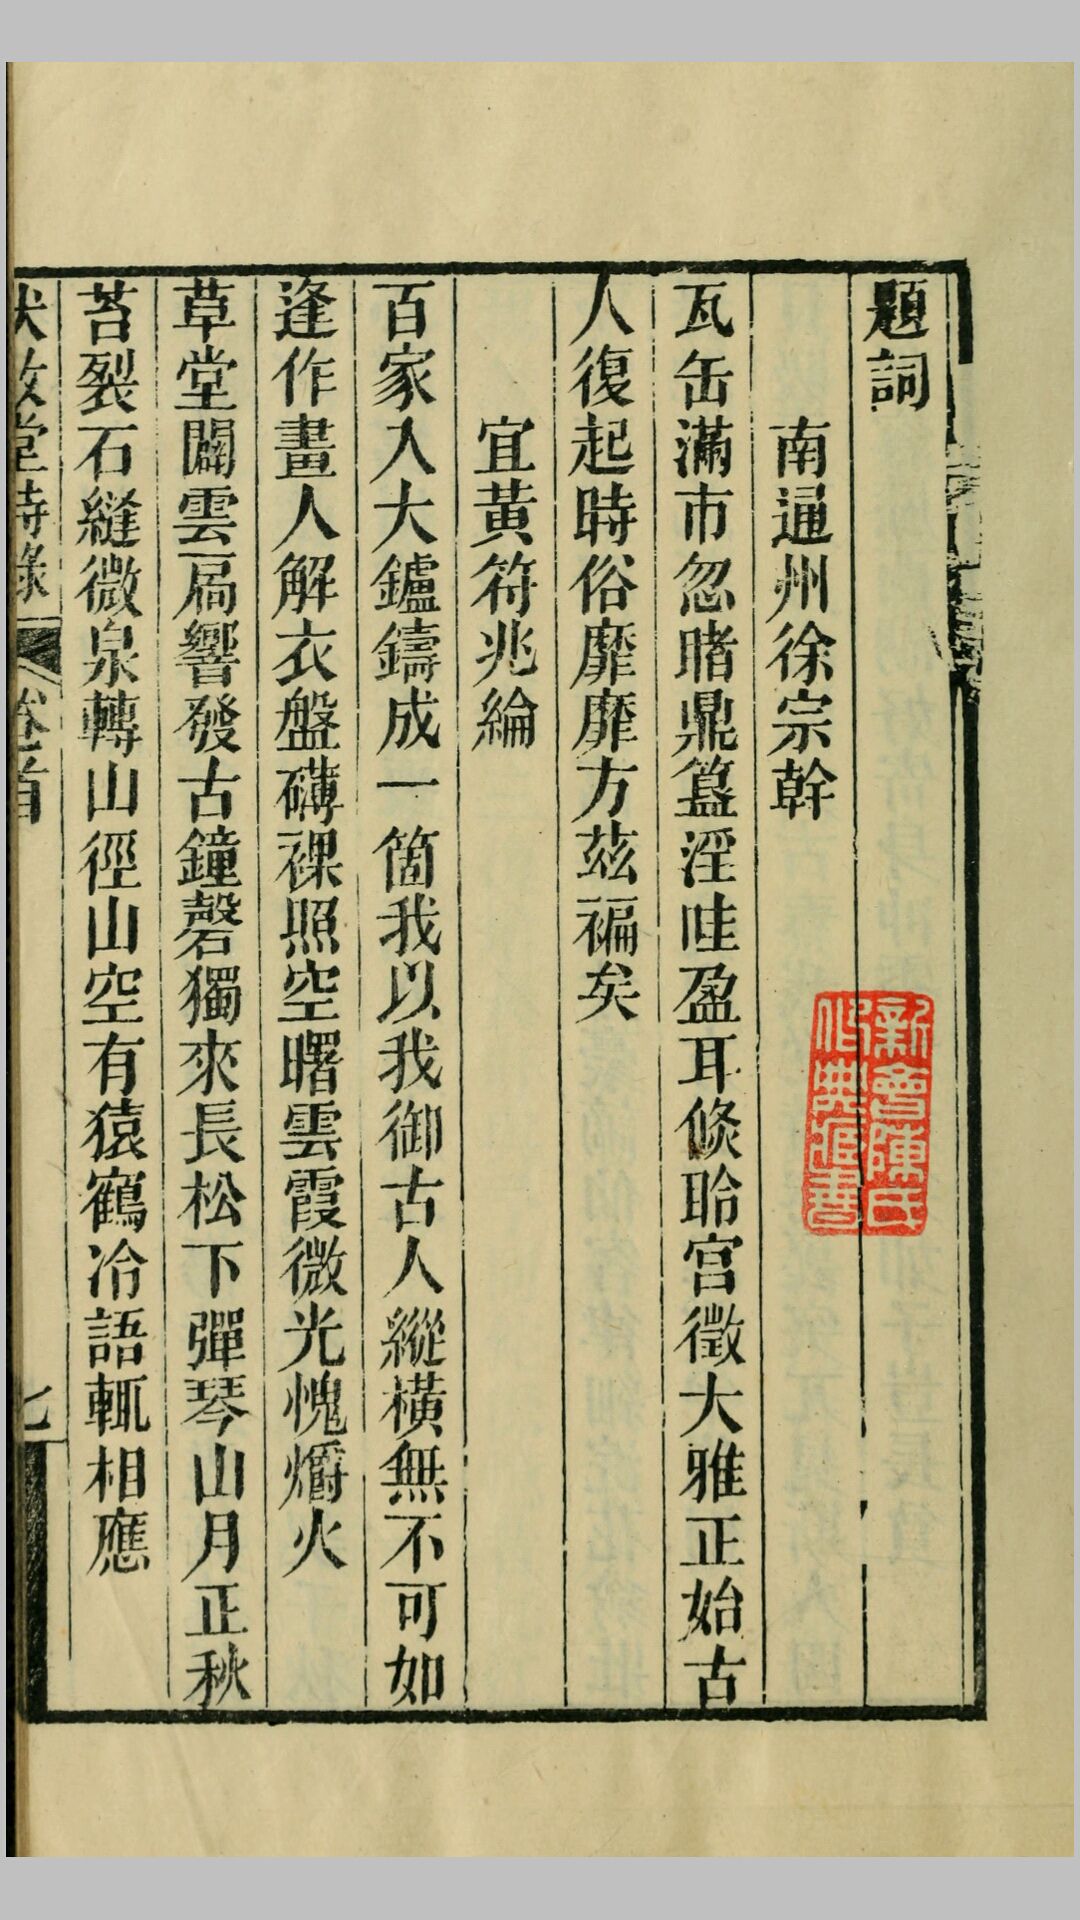 題詞
南通州徐宗幹
瓦缶滿市忽睹鼎簋淫哇盈耳倐聆宮徵大雅正始古
人復起時俗靡靡方茲褊矣
宜黃符兆綸
百家入大鑪鑄成一箇我以我御古人縱橫無不可如
逢作畫人解衣盤礴裸照空曙雲霞微光愧爝火
草堂闢雲扃響發古鐘磬獨來長松下彈琴山月正秋
苔裂石縫微泉轉山徑山空有猿鶴冷語輒相應
堂詩錄
卷首
七
新會陳氏